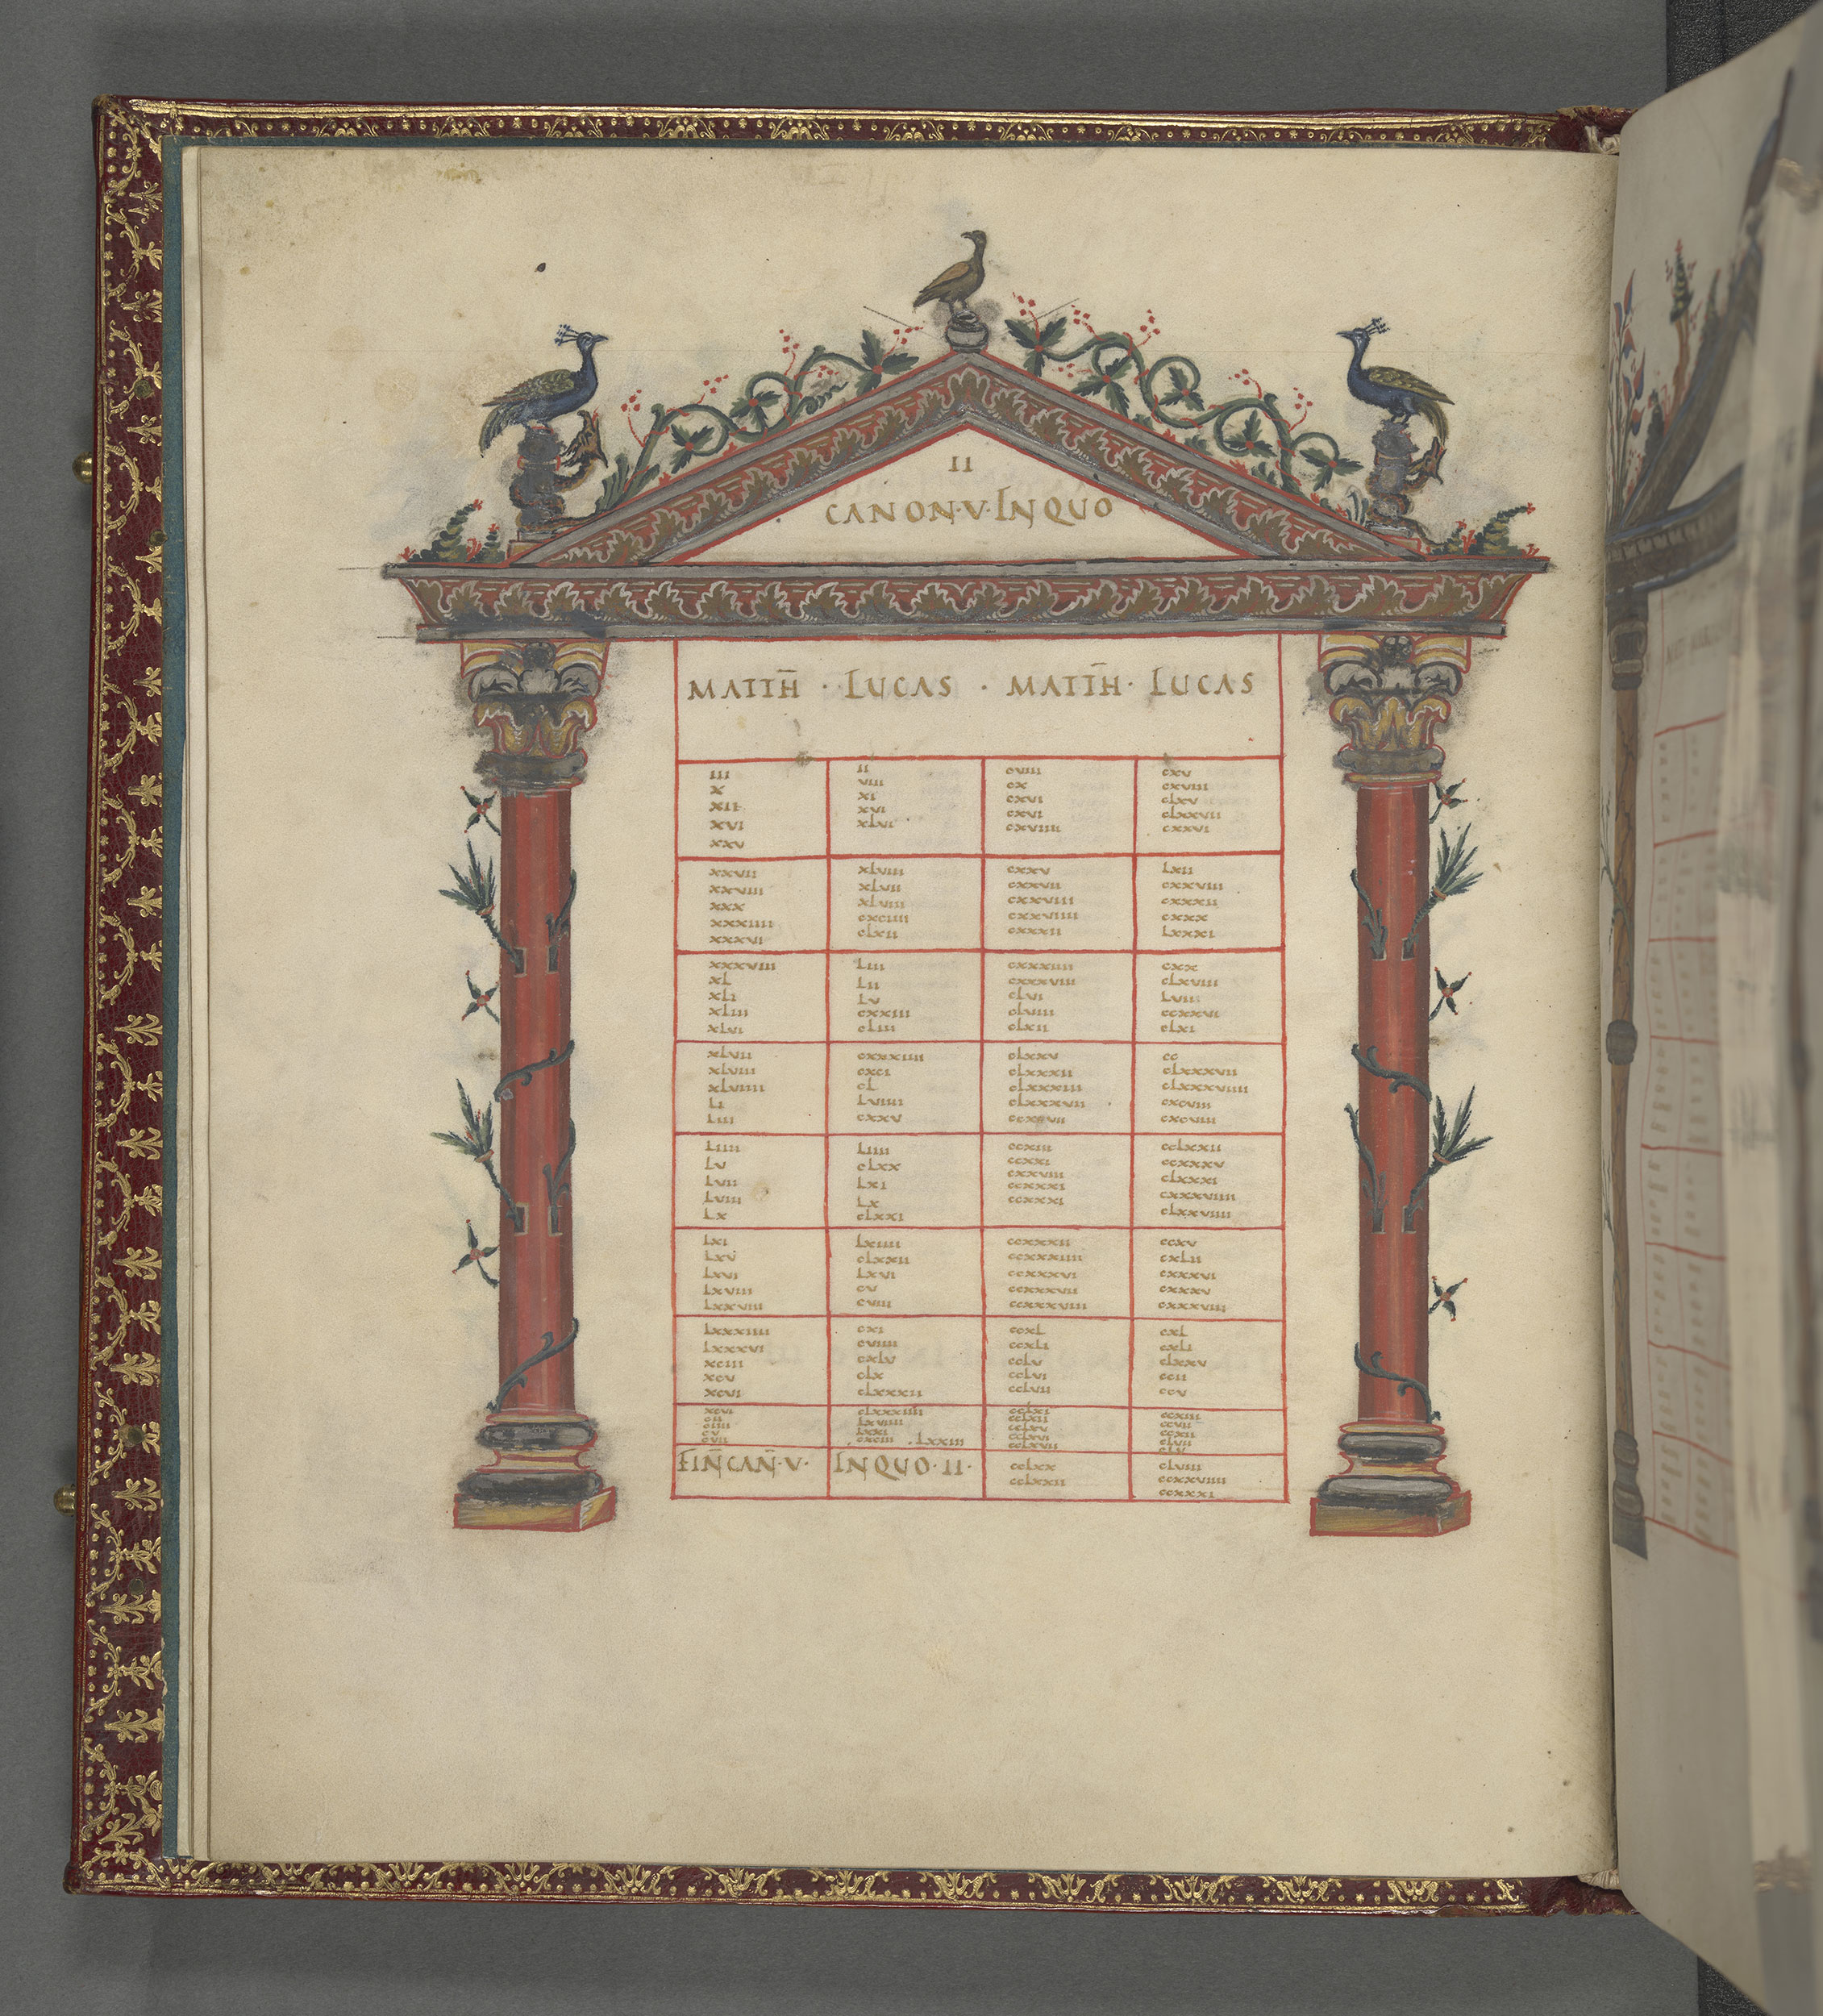 II
CANON·V·INQUO
MATTH̄ · LUCAS · MATTH̄ · LUCAS
iii ii cviii cxv
x viii cx cxviii
xii xi cxvi clxv
xvi xvi cxvi clxxvii
xxv xlvi cxviiii cxxvi
xxvii xlviii cxxv lxii
xxviiii xlvii cxxvii cxxviii
xxx xlviiii cxxviiii cxxxii
xxxiiii cxciiii cxxviiii cxxx
xxxvi clxii cxxxii lxxxi
xxxviii liii cxxxiiii cxx
xl lii cxxxviii clxviii
xli lv clvi lvii
xliii cxxiii clviii ccxxvi
xlvi cliii clxii clxi
xlvii cxxxiiii clxxv cc
xlviii cxci clxxxii clxxxvii
xlviiii cl clxxxiii clxxxviiii
li lviiii clxxxvii cxcvii
liii cxxv cxcviiii
liiii liiii ccxiii cclxxii
lv clxx ccxxi ccxxxv
lvii lxi cxxviii clxxxi
lviii lx ccxxxi cxxxviiii
lx clxxi ccxxxi clxxviiii
lxi lxiiii ccxxxii ccxv
lxv clxxii ccxxxiiii cxlii
lxvi lxvi ccxxxvi cxxxvi
lxviii cv ccxxxvii cxxxv
lxxviii cviii ccxxxviiii cxxxviii
lxxxiiii cxi ccxl cxl
lxxxvi cviiii ccxli cxli
xciii cxlv cclv clxxv
xcv clx cclvi ccii
xcvi clxxxii cclvii ccv
xcvi clxxxiiii cclxi ccxiii
cii lxviiii cclxii ccvii
ciiii lxxi cclxv ccxii
cv cxciii · lxxiii cclxvi clvii
cvii cclxvii clv
FIN̄CAN̄·V· INQUO·II· cclxx clviii
cclxxii ccxxviiii
ccxxxi